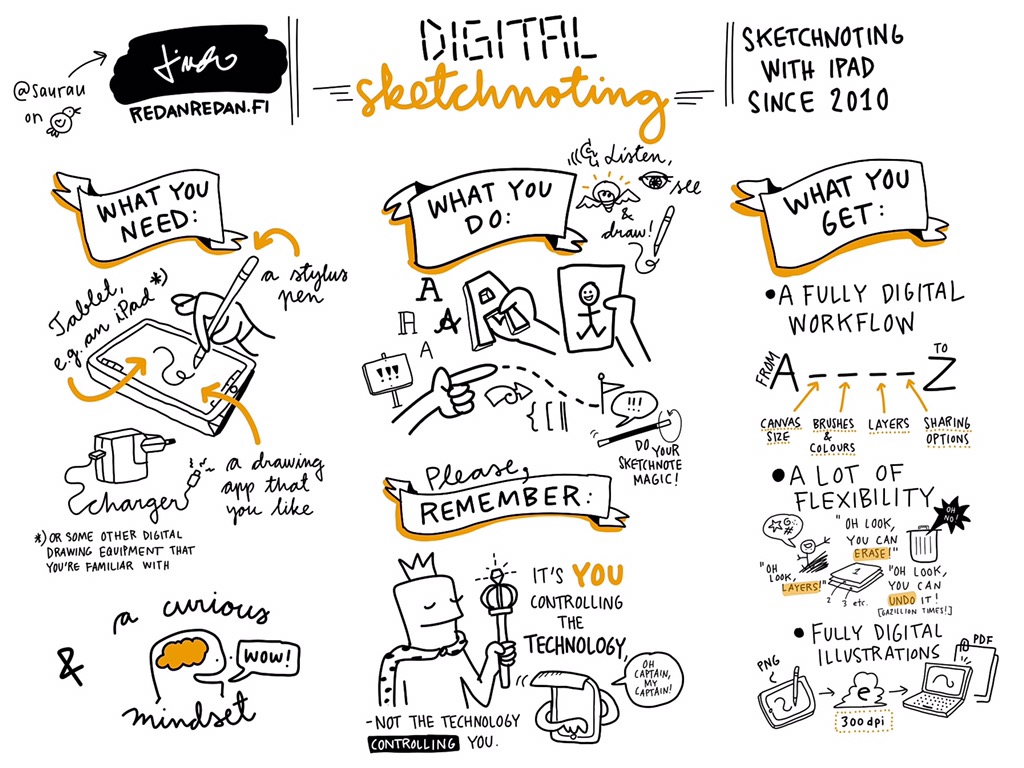 @saurau
on
REDANREDAN.FI
DIGITAL
sketchnoting
SKETCHNOTING
WITH IPAD
SINCE 2010
WHAT YOU
NEED:
a stylus
pen
Tablet,
e.g. an iPad *)
charger
a drawing
app that
you like
*) OR SOME OTHER DIGITAL
DRAWING EQUIPMENT THAT
YOU'RE FAMILIAR WITH
&
a curious
WOW!
mindset
WHAT YOU
DO:
Listen,
see
&
draw!
A
A A
A
!!!
!!!
DO YOUR
SKETCHNOTE
MAGIC!
Please,
REMEMBER:
IT'S YOU
CONTROLLING
THE
TECHNOLOGY,
OH
CAPTAIN,
MY
CAPTAIN!
-NOT THE TECHNOLOGY
CONTROLLING YOU.
WHAT YOU
GET:
•A FULLY DIGITAL
WORKFLOW
FROM A ---- TO Z
CANVAS
SIZE
BRUSHES
&
COLOURS
LAYERS
SHARING
OPTIONS
•A LOT OF
FLEXIBILITY
"OH LOOK,
YOU CAN
ERASE!"
OH
NO!
"OH
LOOK,
LAYERS!"
1
2 3 etc.
"OH LOOK,
YOU CAN
UNDO IT!
[GAZILLION TIMES!]
•FULLY DIGITAL
ILLUSTRATIONS
PNG
e
300 dpi
PDF